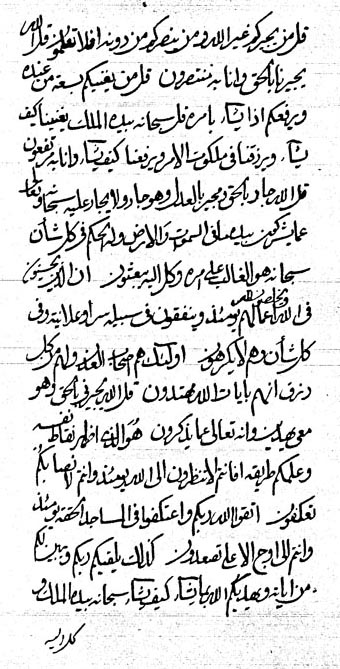 قل من يجيركم غير الله ومن ينصركم من دونه افلا تعلمون قل الله
يجيرنا بالحق وانا به منتصرون قل من يغنيكم بسعة من عنده
ويرفعكم اذا يشاء بامره قل سبحانه بيده الملك يغنينا كيف
يشاء ويرزقنا في ملكوت الامر ويرفعنا كيف يشاء وانا به مرتفعون
قل الله جار بالحق ومجير بالعدل وهو جار ولا يجار عليه سبحانه وتعالى
عما يشركون بيده ملك السموات والارض وله الحكم في كل شأن
سبحانه هو الغالب على امره وكل اليه يبعثون ان الذين يحبون
في الله ويخلصون اعمالهم يومئذ وينفقون في سبيله سرا وعلانية وفي
كل شأن وهم لا يكرهون اولئك هم
رزق انهم بايات الله مهتدون قل الله بالحق وهو
معي وانه تعالى عما يذكرون هو الذي اظهر نفسه
وعلمكم طريقه افانتم لا تنظرون الى الله يومئذ وانتم لا
تعكفون اتقوا الله ربكم واعتكفوا في المساجد يومئذ
وانتم الى اوج الاعلى تصعدون كذلك يلقيكم ربكم ويبين لكم
من اياته ويهديكم الله بما يشاء كيف يشاء سبحانه بيده الملك و